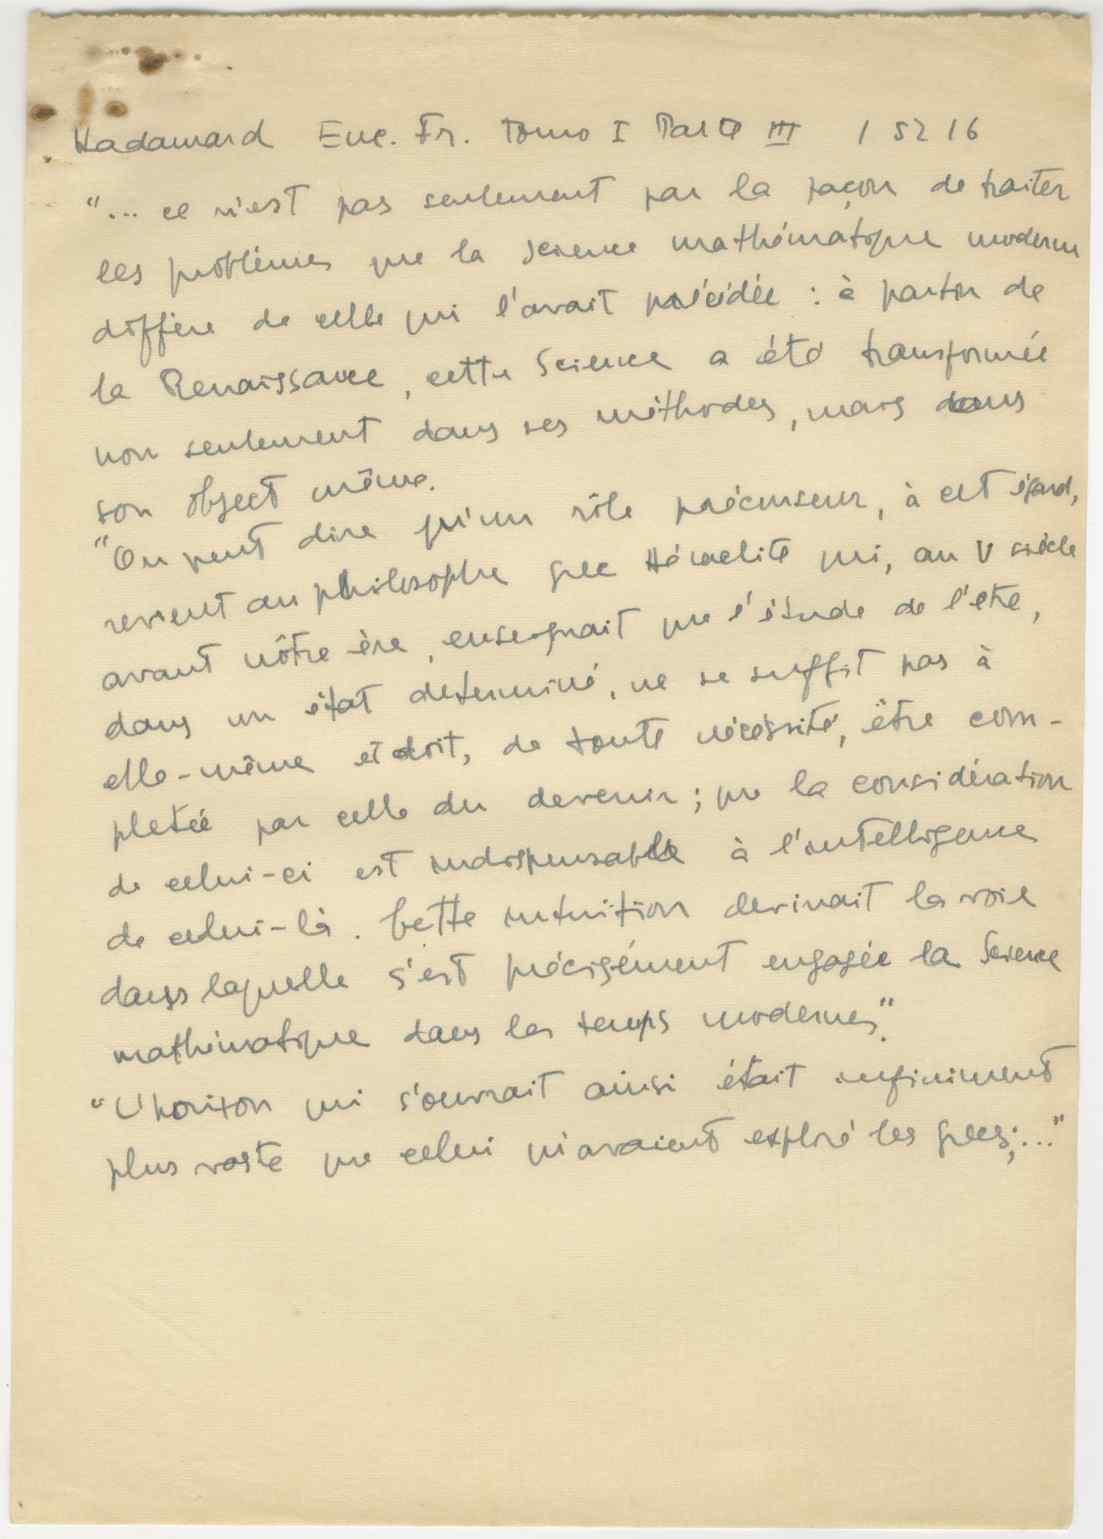 Hadamard Enc. Fr. Tomo I Parte III 1 52 16
"... ce n'est pas seulement par la façon de traiter
les problèmes que la science mathématique moderne
diffère de celle qui l'avait précédée : à partir de
la Renaissance, cette Science a été transformée
non seulement dans ses méthodes, mais dans
son object même.
"On peut dire qu'un rôle précurseur, à cet égard,
revient au philosophe grec Héraclite qui, au V siècle
avant nôtre ère, enseignait que l'étude de l'etre,
dans un état determiné, ne se suffit pas à
elle-même et doit, de toute nécéssité, être com-
pletée par celle du devenir ; que la considération
de celui-ci est indispensable à l'intelligence
de celui-là. Cette intuition devinait la voie
dans laquelle s'est précisément engagée la Science
mathématique dans les temps modernes".
"L'horizon qui s'ouvrait ainsi était infiniment
plus vaste que celui qu'avaient exploré les grecs;..."